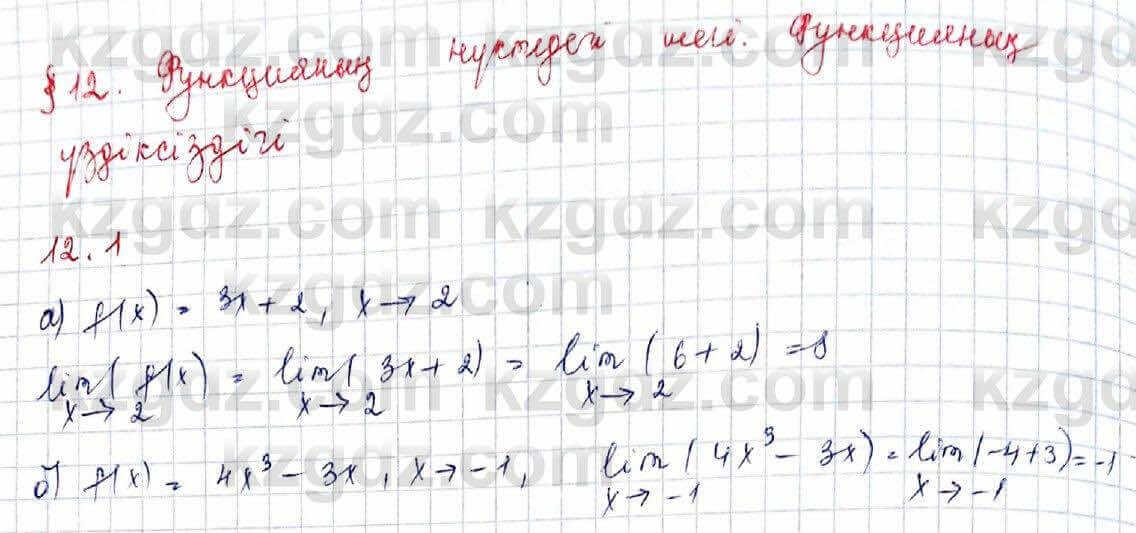 §12. Функцияның нүктедегі шегі. Функцияның
үздіксіздігі
12.1
а) f(x) = 3x + 2, x → 2
lim( f(x) = lim( 3x + 2) = lim (6 + 2) = 8
x → 2 x → 2 x → 2
б) f(x) = 4x³ - 3x, x → -1, lim (4x³ - 3x) = lim(-4+3) = -1
x → -1 x → -1
kzgdz.com